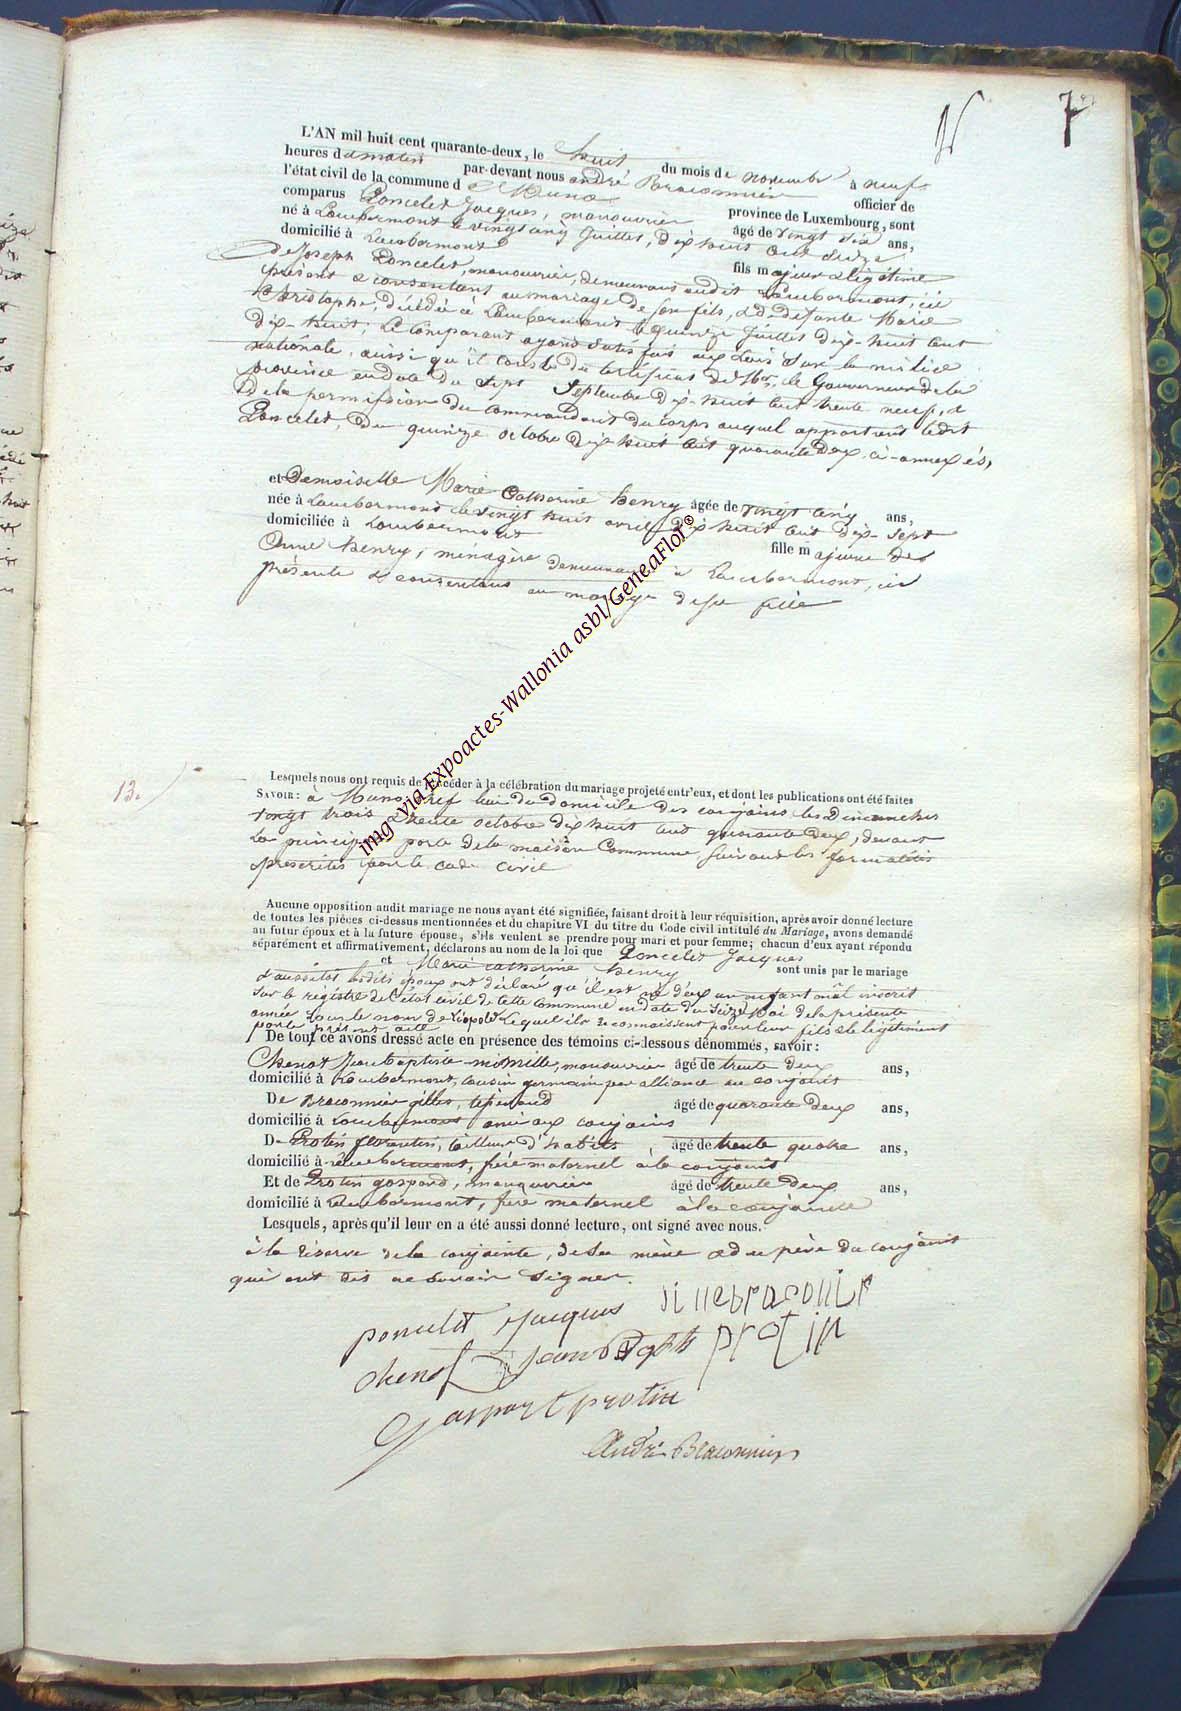 7
L'AN mil huit cent quarante-deux, le huit du mois de novembre à neuf
heures du matin par-devant nous andré Braconnier officier de
l'état civil de la commune d e Muno province de Luxembourg, sont
comparus Poncelet Jacques, manouvrier âgé de vingt six ans,
né à Lambermont le vingt cinq Juillet, dix huit cent seize
domicilié à Lambermont fils majeur & légitime
de Joseph Poncelet, manouvrier, demeurant audit Lambermont, ici
présent & consentant au mariage de son fils, & de defunte Marie
Christophe, décédée à Lambermont le quinze Juillet dix-huit cent
dix-huit; le comparant ayant satisfait aux Lois sur la milice
nationale, ainsi qu'il conste du certificat de Mr. le Gouverneur de la
province en date du sept Septembre dix-huit cent trente neuf, &
de la permission du commandant du corps auquel appartient ledit
Poncelet, du quinze octobre dix huit cent quarante deux ci-annexés,
et Demoiselle Marie Catherine henry âgée de vingt cinq ans,
née à Lambermont le vingt huit avril dix huit cent dix-sept
domiciliée à Lambermont fille majeure de
Anne henry, ménagère demeurant à Lambermont, ici
présente & consentant au mariage de sa fille
13.
Lesquels nous ont requis de procéder à la célébration du mariage projeté entr'eux, et dont les publications ont été faites
SAVOIR : à Muno chef lieu du domicile des conjoins les Dimanches
vingt trois & trente octobre dix huit cent quarante deux, devant
la principale porte de la maison Commune suivant les formalités
prescrites par le code civil
Aucune opposition audit mariage ne nous ayant été signifiée, faisant droit à leur réquisition, après avoir donné lecture
de toutes les pièces ci-dessus mentionnées et du chapitre VI du titre du Code civil intitulé du Mariage, avons demandé
au futur époux et à la future épouse, s'ils veulent se prendre pour mari et pour femme; chacun d'eux ayant répondu
séparément et affirmativement, déclarons au nom de la loi que Poncelet Jacques
et Marie catherine henry sont unis par le mariage
& aussitôt lesdits époux ont déclaré qu'il est né d'eux un enfant mâl inscrit
sur le régistre de l'état civil de cette commune en date du seize Mai de la présente
année sous le nom de Léopold lequel ils reconnaissent pour leur fils & le légitiment
par le présent acte
De tout ce avons dressé acte en présence des témoins ci-dessous dénommés, savoir :
Chenot Jean baptiste, manouvrier âgé de trente deux ans,
domicilié à Lambermont, cousin germain par alliance au conjoint
De Braconnier gilles, âgé de quarante deux ans,
domicilié à Lambermont ami aux conjoins
De Protin florentin, tailleur d'habits âgé de trente quatre ans,
domicilié à Lambermont, frère maternel à la conjointe
Et de Protin gaspard, manouvrier âgé de trente deux ans,
domicilié à Lambermont, frère maternel à la conjointe
Lesquels, après qu'il leur en a été aussi donné lecture, ont signé avec nous.
à la réserve de la conjointe, de sa mère & du père du conjoint
qui ont dit ne savoir signer.
poncelet Jacques
chenot Jean
protin
Gaspart protin
André Braconnier
img- via Expoactes-Wallonia asbl/GeneaFlor®